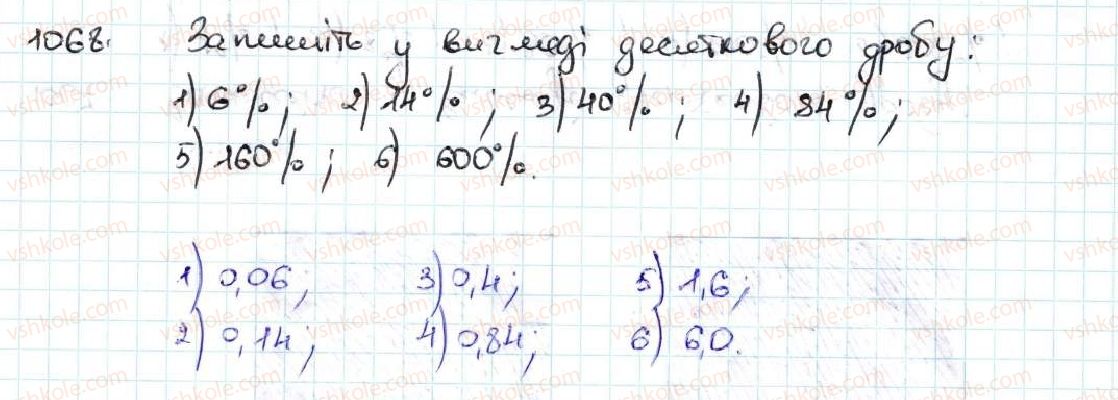 1068. Запишіть у вигляді десяткового дробу:
1) 6%; 2) 14%; 3) 40%; 4) 84%;
5) 160%; 6) 600%.
1) 0,06; 3) 0,4; 5) 1,6;
2) 0,14; 4) 0,84; 6) 6,0.